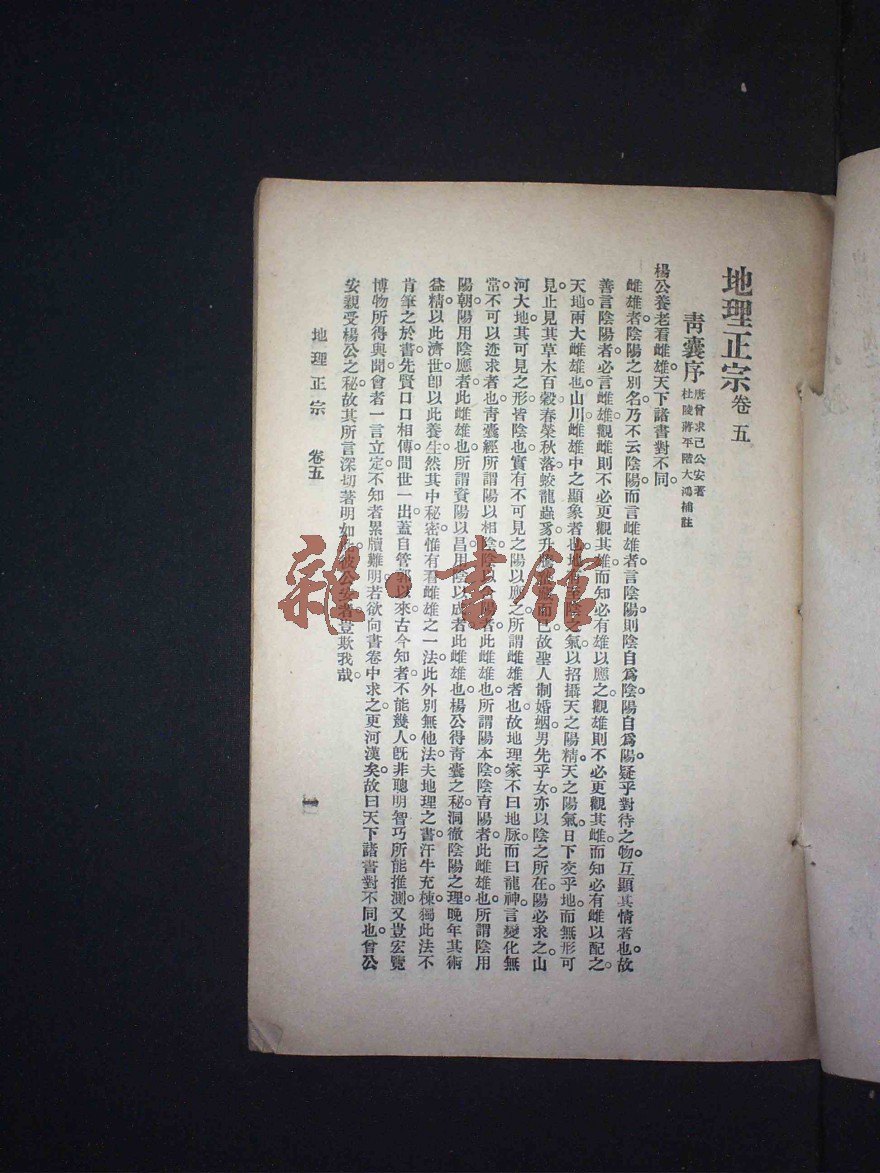 地理正宗卷五
青囊序
唐曾求己公安著
杜陵蔣平階大鴻補註
楊公養老看雌雄。天下諸書對不同。
雌雄者。陰陽之別名。乃不云陰陽而言雌雄者。言陰陽則陰自爲陰。陽自爲陽。疑乎對待之物。互顯其情者也。故
善言陰陽者。必言雌雄。觀雌則不必更觀其雄。而知必有雄以應之。觀雄則不必更觀其雌。而知必有雌以配之。
天地兩大雌雄也。山川雌雄中之顯象者也。地 陰 氣以招攝天之陽精。天之陽氣。日下交乎地。而無形可
見。止見其草木百穀。春榮秋落。蛟龍蟲豸。升騰 而已。故聖人制婚姻。男先乎女。亦以陰之所在。陽必求之。山
河大地。其可見之形。皆陰也。實有不可見之陽以應之。所謂雌雄者也。故地理家不曰地脉。而曰龍神。言變化無
常。不可以迹求者也。青囊經所謂陽以相陰。陰以 陽者。此雌雄也。所謂陽本陰。陰育陽者。此雌雄也。所謂陰用
陽朝。陽用陰應者。此雌雄也。所謂資陽以昌。用陰以成者。此雌雄也。楊公得青囊之秘。洞徹陰陽之理。晚年其術
益精。以此濟世。卽以此養生。然其中秘密。惟有看雌雄之一法。此外別無他法。夫地理之書。汗牛充棟。獨此法不
肯筆之於書。先賢口口相傳。間世一出。蓋自管郭以來。古今知者。不能幾人。旣非聰明智巧所能推測。又豈宏覽
博物所得與聞。會者一言立定。不知者累牘難明。若欲向書卷中求之。更河漢矣。故曰天下諸書對不同也。曾公
安親受楊公之秘。故其所言深切著明如 彼公安者。豈欺我哉。
地理正宗 卷五
一
雜·書館